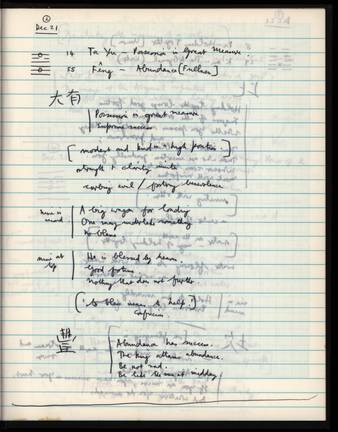 ②
Dec 21
14 Ta Yu – Possession in great measure.
55 Fêng – Abundance [Fullness]
大有
Possession in great measure
Supreme success
[modest and kind in high position.]
strength & clarity unite
curbing evil / furthering benevolence
nine in second
A big wagon for loading
One may undertake something
No blame
nine at top
He is blessed by heaven.
Good fortune
nothing that does not further.
("To bless means to help".)
Confucius.
豐
Abundance has success.
The King attains abundance.
Be not sad.
Be like the sun at midday